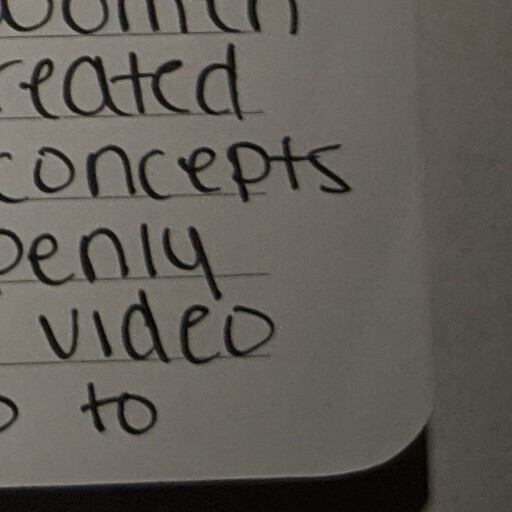 women
reated
concepts
penly
video
to